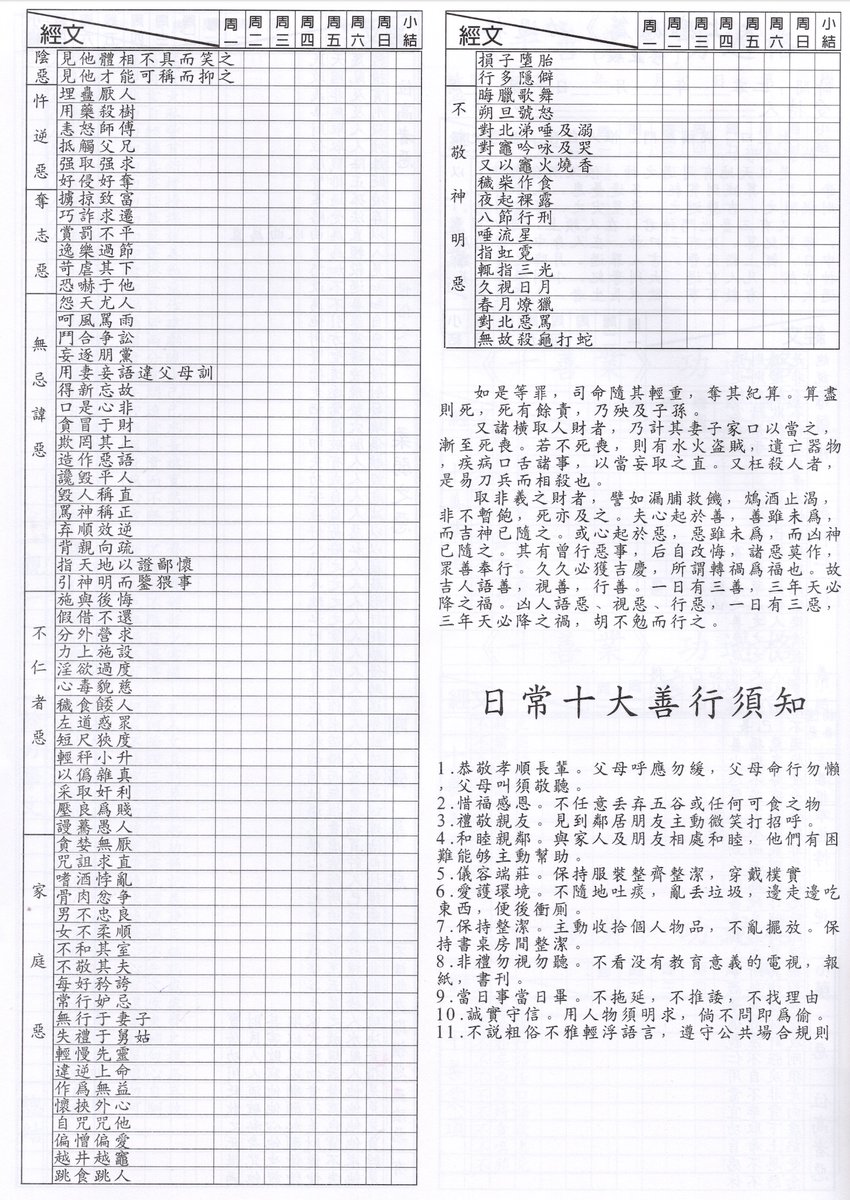 經文 周一 周二 周三 周四 周五 周六 周日 小結
陰惡
見他體相不具而笑之
見他才能可稱而抑之
忤逆惡
埋蠱厭人
用藥殺樹
恚怒師傅
抵觸父兄
强取强求
好侵好奪
奪志惡
擄掠致富
巧詐求遷
賞罰不平
逸樂過節
苛虐其下
恐嚇于他
無忌諱惡
怨天尤人
呵風罵雨
鬥合争訟
妄逐朋黨
用妻妾語違父母訓
得新忘故
口是心非
貪冒于財
欺罔其上
造作惡語
讒毀平人
毀人稱直
罵神稱正
弃順效逆
背親向疏
指天地以證鄙懷
引神明而鑒猥事
不仁者惡
施與後悔
假借不還
分外營求
力上施設
淫欲過度
心毒貌慈
穢食餧人
左道惑眾
短尺狹度
輕秤小升
以僞雜真
采取奸利
壓良爲賤
謾驀愚人
家庭惡
貪婪無厭
咒詛求直
嗜酒悖亂
骨肉忿争
男不忠良
女不柔順
不和其室
不敬其夫
每好矜誇
常行妒忌
無行于妻子
失禮于舅姑
輕慢先靈
違逆上命
作爲無益
懷挾外心
自咒咒他
偏憎偏愛
越井越竈
跳食跳人
經文 周一 周二 周三 周四 周五 周六 周日 小結
損子墮胎
行多隱僻
不敬神明惡
晦臘歌舞
朔旦號怒
對北涕唾及溺
對竈吟咏及哭
又以竈火燒香
穢柴作食
夜起裸露
八節行刑
唾流星
指虹霓
輒指三光
久視日月
春月燎獵
對北惡罵
無故殺龜打蛇
如是等罪，司命隨其輕重，奪其紀算。算盡
則死，死有餘責，乃殃及子孫。
又諸橫取人財者，乃計其妻子家口以當之，
漸至死喪。若不死喪，則有水火盜賊，遺亡器物
，疾病口舌諸事，以當妄取之直。又枉殺人者，
是易刀兵而相殺也。
取非義之財者，譬如漏脯救饑，鴆酒止渴，
非不暫飽，死亦及之。夫心起於善，善雖未爲，
而吉神已隨之。或心起於惡，惡雖未爲，而凶神
已隨之。其有曾行惡事，后自改悔，諸惡莫作，
眾善奉行。久久必獲吉慶，所謂轉禍爲福也。故
吉人語善，視善，行善。一日有三善，三年天必
降之福。凶人語惡、視惡、行惡，一日有三惡，
三年天必降之禍，胡不勉而行之。
日常十大善行須知
1.恭敬孝順長輩。父母呼應勿緩，父母命行勿懶
，父母叫須敬聽。
2.惜福感恩。不任意丢弃五谷或任何可食之物
3.禮敬親友。見到鄰居朋友主動微笑打招呼。
4.和睦親鄰。與家人及朋友相處和睦，他們有困
難能够主動幫助。
5.儀容端莊。保持服裝整齊整潔，穿戴樸實
6.愛護環境。不隨地吐痰，亂丢垃圾，邊走邊吃
東西，便後衝厠。
7.保持整潔。主動收拾個人物品，不亂擺放。保
持書桌房間整潔。
8.非禮勿視勿聽。不看没有教育意義的電視，報
紙，書刊。
9.當日事當日畢。不拖延，不推諉，不找理由
10.誠實守信。用人物須明求，倘不問即爲偷。
11.不説粗俗不雅輕浮語言，遵守公共場合規則